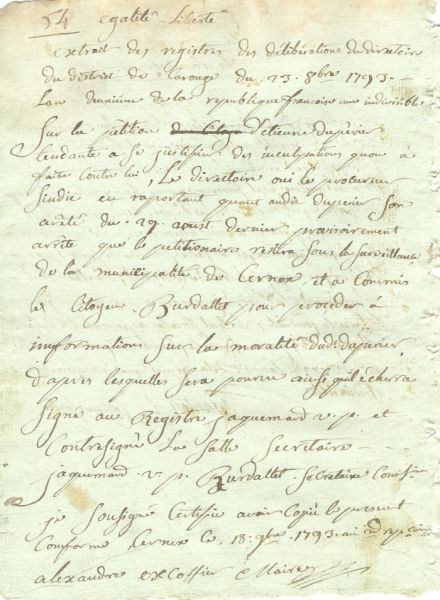 54 egalité Liberté
extrait des registres des délibération du directoire
du district de Carouge du 23. 8bre 1793. —
L'an deuxieme de la republique francaise une indivisible
Sur la pétition d'etienne Dupérier
tendante a se justifier des inculpations quon a
faite contre lui, Le directoire oui le procureur
sindic en raportant quant audit Duperier Son
arêté du 29. aoust dernier provisoirement
arrête que le petitionaire restera sous la surveillance
de la municipalité de Cernex et a Commis
le Citoyen Burdallet pour procéder à
imformations sur la moralité dudit duperier
d'apres lesquelles sera pourvu ainsi quil écherra
Signé au Registre jaquemard v. p. et
Contresigné La Salle Secretaire —
jaquemard v. p. Burdallet Secretaire
je Sousigné Certifie avoir Copié le present
Conforme Cernex le 18. 9bre 1793. an
alexandre excoffier Maire